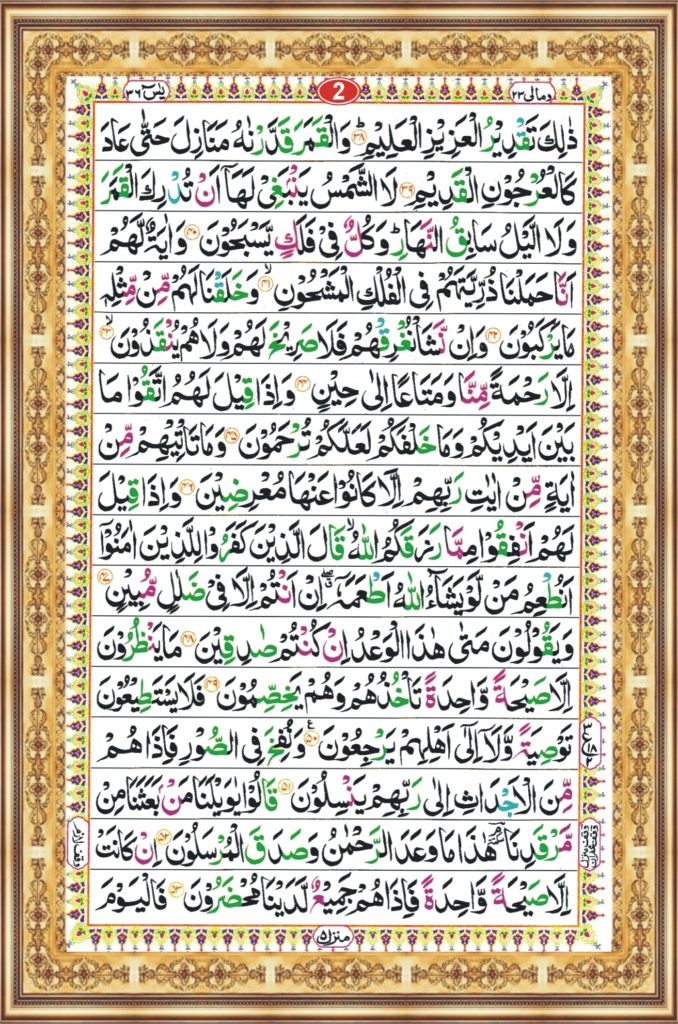 یٰسٓ ٣٦
2
ومالی ٢٣
ذٰلِكَ تَقْدِيْرُ الْعَزِيْزِ الْعَلِيْمِ ؕ ﴿٣٨﴾ وَالْقَمَرَ قَدَّرْنٰهُ مَنَازِلَ حَتّٰى عَادَ
كَالْعُرْجُوْنِ الْقَدِيْمِ ﴿٣٩﴾ لَا الشَّمْسُ يَنْۢبَغِيْ لَهَاۤ اَنْ تُدْرِكَ الْقَمَرَ
وَلَا الَّيْلُ سَابِقُ النَّهَارِ ؕ وَكُلٌّ فِيْ فَلَكٍ يَّسْبَحُوْنَ ﴿٤٠﴾ وَاٰيَةٌ لَّهُمْ
اَنَّا حَمَلْنَا ذُرِّيَّتَهُمْ فِى الْفُلْكِ الْمَشْحُوْنِ ۙ ﴿٤١﴾ وَخَلَقْنَا لَهُمْ مِّنْ مِّثْلِهٖ
مَا يَرْكَبُوْنَ ﴿٤٢﴾ وَاِنْ نَّشَاْ نُغْرِقْهُمْ فَلَا صَرِيْخَ لَهُمْ وَلَا هُمْ يُنْقَذُوْنَ ۙ ﴿٤٣﴾
اِلَّا رَحْمَةً مِّنَّا وَمَتَاعًا اِلٰى حِيْنٍ ﴿٤٤﴾ وَاِذَا قِيْلَ لَهُمُ اتَّقُوْا مَا
بَيْنَ اَيْدِيْكُمْ وَمَا خَلْفَكُمْ لَعَلَّكُمْ تُرْحَمُوْنَ ﴿٤٥﴾ وَمَا تَاْتِيْهِمْ مِّنْ
اٰيَةٍ مِّنْ اٰيٰتِ رَبِّهِمْ اِلَّا كَانُوْا عَنْهَا مُعْرِضِيْنَ ﴿٤٦﴾ وَاِذَا قِيْلَ
لَهُمْ اَنْفِقُوْا مِمَّا رَزَقَكُمُ اللّٰهُ ۙ قَالَ الَّذِيْنَ كَفَرُوْا لِلَّذِيْنَ اٰمَنُوْۤا
اَنُطْعِمُ مَنْ لَّوْ يَشَآءُ اللّٰهُ اَطْعَمَهٗۤ ۖ اِنْ اَنْتُمْ اِلَّا فِيْ ضَلٰلٍ مُّبِيْنٍ ﴿٤٧﴾
وَيَقُوْلُوْنَ مَتٰى هٰذَا الْوَعْدُ اِنْ كُنْتُمْ صٰدِقِيْنَ ﴿٤٨﴾ مَا يَنْظُرُوْنَ
اِلَّا صَيْحَةً وَّاحِدَةً تَاْخُذُهُمْ وَهُمْ يَخِصِّمُوْنَ ﴿٤٩﴾ فَلَا يَسْتَطِيْعُوْنَ
تَوْصِيَةً وَّلَاۤ اِلٰۤى اَهْلِهِمْ يَرْجِعُوْنَ ﴿٥٠﴾ ع وَنُفِخَ فِى الصُّوْرِ فَاِذَا هُمْ
مِّنَ الْاَجْدَاثِ اِلٰى رَبِّهِمْ يَنْسِلُوْنَ ﴿٥١﴾ قَالُوْا يٰوَيْلَنَا مَنْۢ بَعَثَنَا مِنْ
مَّرْقَدِنَا ۘ هٰذَا مَا وَعَدَ الرَّحْمٰنُ وَصَدَقَ الْمُرْسَلُوْنَ ﴿٥٢﴾ اِنْ كَانَتْ
اِلَّا صَيْحَةً وَّاحِدَةً فَاِذَا هُمْ جَمِيْعٌ لَّدَيْنَا مُحْضَرُوْنَ ﴿٥٣﴾ فَالْيَوْمَ
منزل ٥